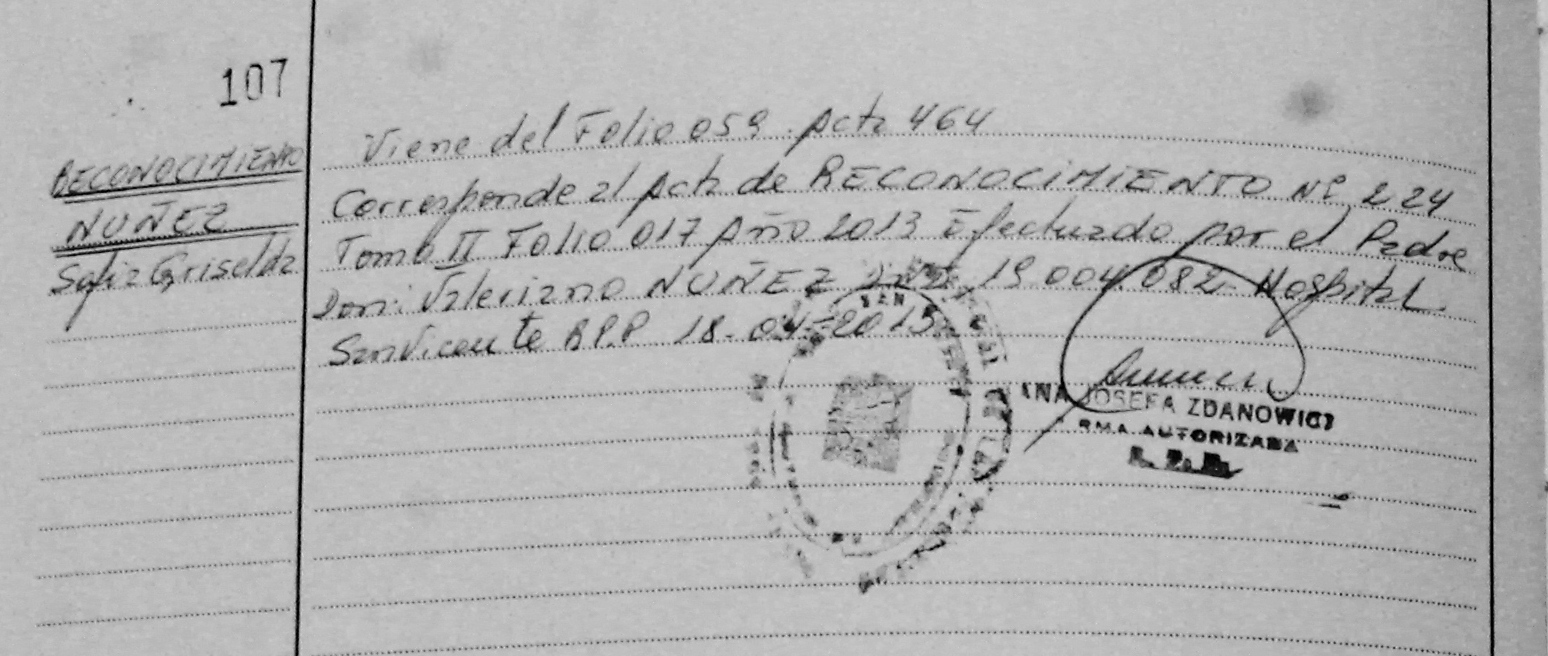 107
RECONOCIMIENTO
NUÑEZ
Sofia Griselda
Viene del Folio 059 Acta 464
Corresponde al Acta de RECONOCIMIENTO Nº 224
Tomo II Folio 017 Año 2013 Efectuado por el Padre
Don: Valeriano NUÑEZ 19.004.082 Hospital
San Vicente B.P.P 18-04-2013
SAN
ANA JOSEFA ZDANOWICZ
RMA AUTORIZADA